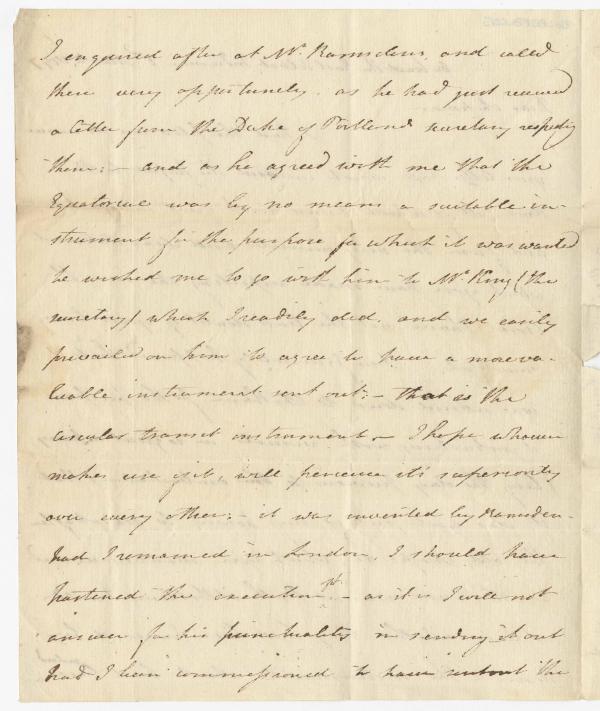 I enquired after at Mr. Ramsdens, and called
there very opportunely, as he had just received
a letter from the Duke of Portlands secretary respecting
them: – and as he agreed with me that the
Equatoreal was by no means a suitable in-
strument for the purpose for which it was wanted
he wished me to go with him to Mr. King (the
secretary) which I readily did, and we easily
prevailed on him to agree to have a more va-
luable instrument sent out: – that is the
circular transit instrument – I hope whoever
makes use of it, will perceive it's superiority
over every other: – it was invented by Ramsden.
had I remained in London, I should have
hastened the execution – as it is I will not
answer for his punctuality in sending it out
had I been commissioned to have the